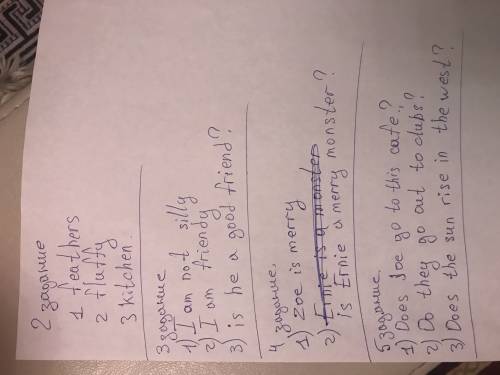 2 задание
1 feathers
2 fluffy
3 kitchen.
3 задание
1) I am not silly
2) I am friendly
3) is he a good friend?
4 задание.
1) Zoe is merry
2) Ernie is a monster
is Ernie a merry monster?
5 задание.
1) Does Joe go to this cafe?
2) Do they go out to clubs?
3) Does the sun rise in the west?